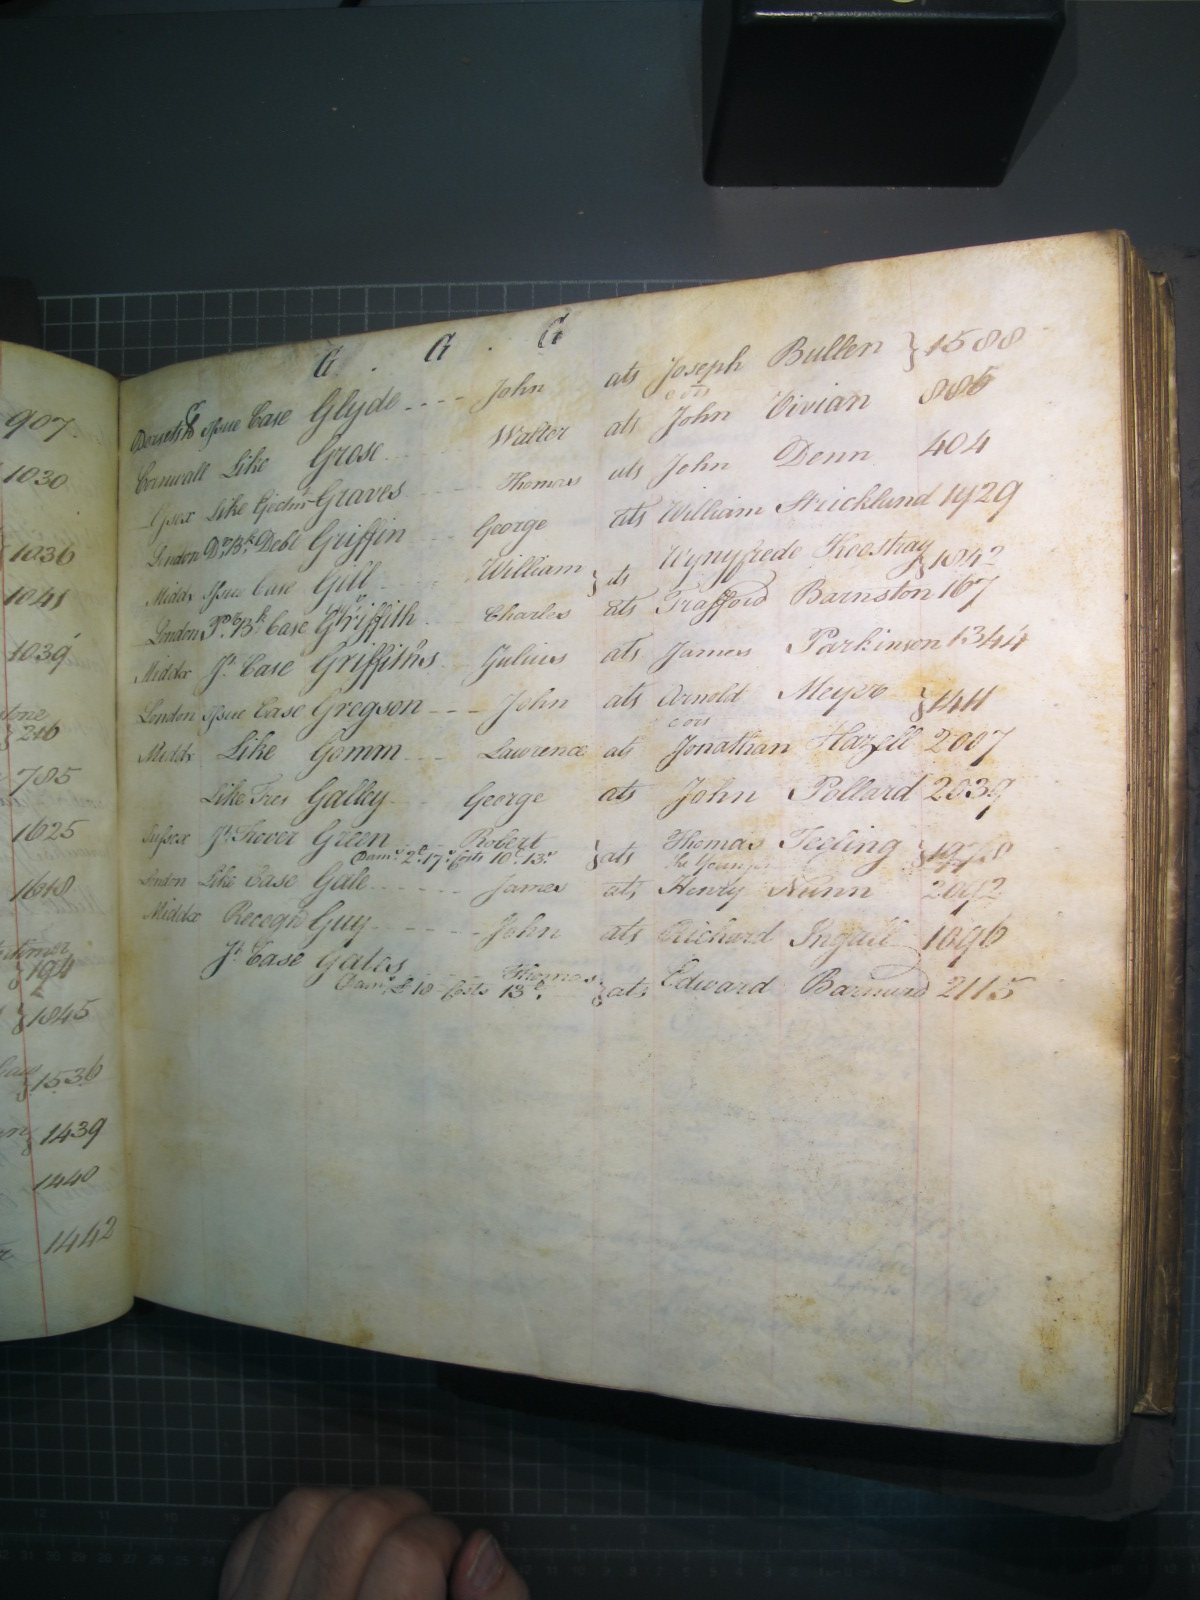 907.
1030
1036
1041
1039
216
785
1625
1618
194
1845
1536
1439
1440
1442
G . G . G
Dorsetsh Issue Case Glyde John ats Joseph Bullen } 1588
Cornwall Like Grose Walter ats John Vivian 886
Like Ejectmt Graves Thomas ats John Denn 404
London Debt Griffin George ats William Strickland 1929
Middx Issue Case Gill William } ats Wynyfrede } 1842
London Case Griffith Charles ats Trafford Barnston 167
Middx Jt. Case Griffiths Julius ats James Parkinson 1344
London Issue Case Gregson John ats Arnold Meyer } 1411
Middx Like Gomm Lawrence ats Jonathan Hazell 2007
Like Tres Galley George ats John Pollard 2039
Sussex Jt. Trover Green Robert } ats Thomas Teeling
Dams. 2d. 17s. Costs 10d. 13s. the Younger
London Like Case Gale James ats Henry Nunn 2092
Middx Recogn Guy John ats Richard Ingall 1696
Jt. Case Gates Thomas } ats Edward Barnard 2115
Dams. £10 Costs 13d.